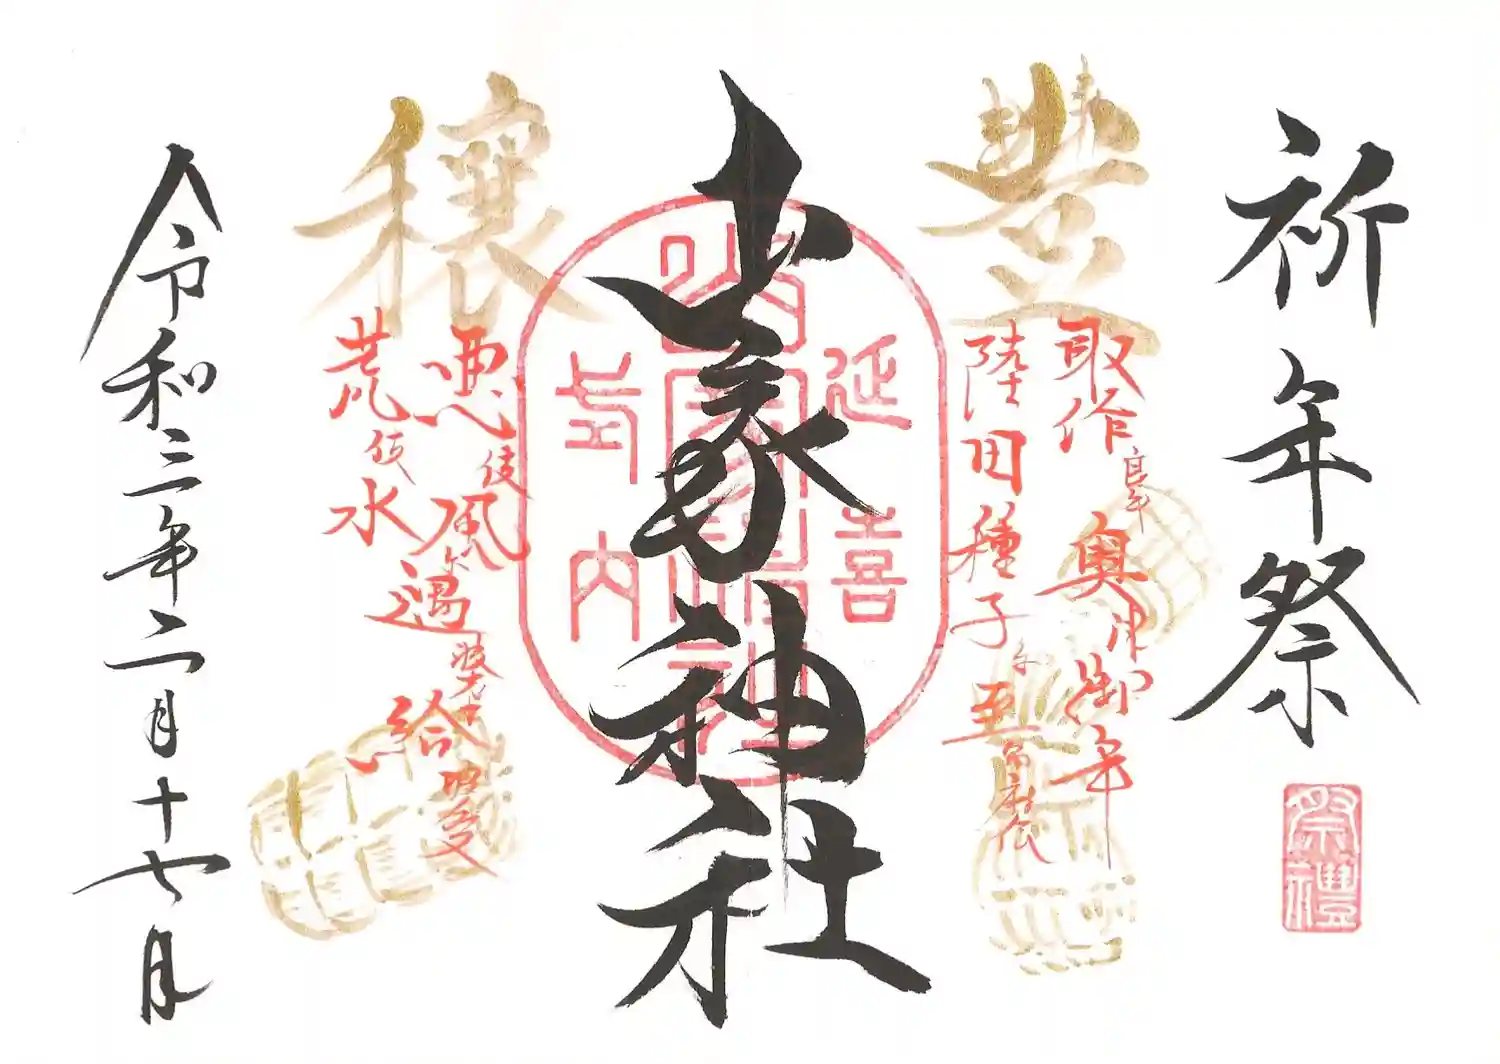 祈年祭
祭禮
豊
取作奥御年
陸田種子至
山家神社
延喜
式内
山家神社
穰
悪伎風
荒伎水
遇
給
令和三年二月十七日